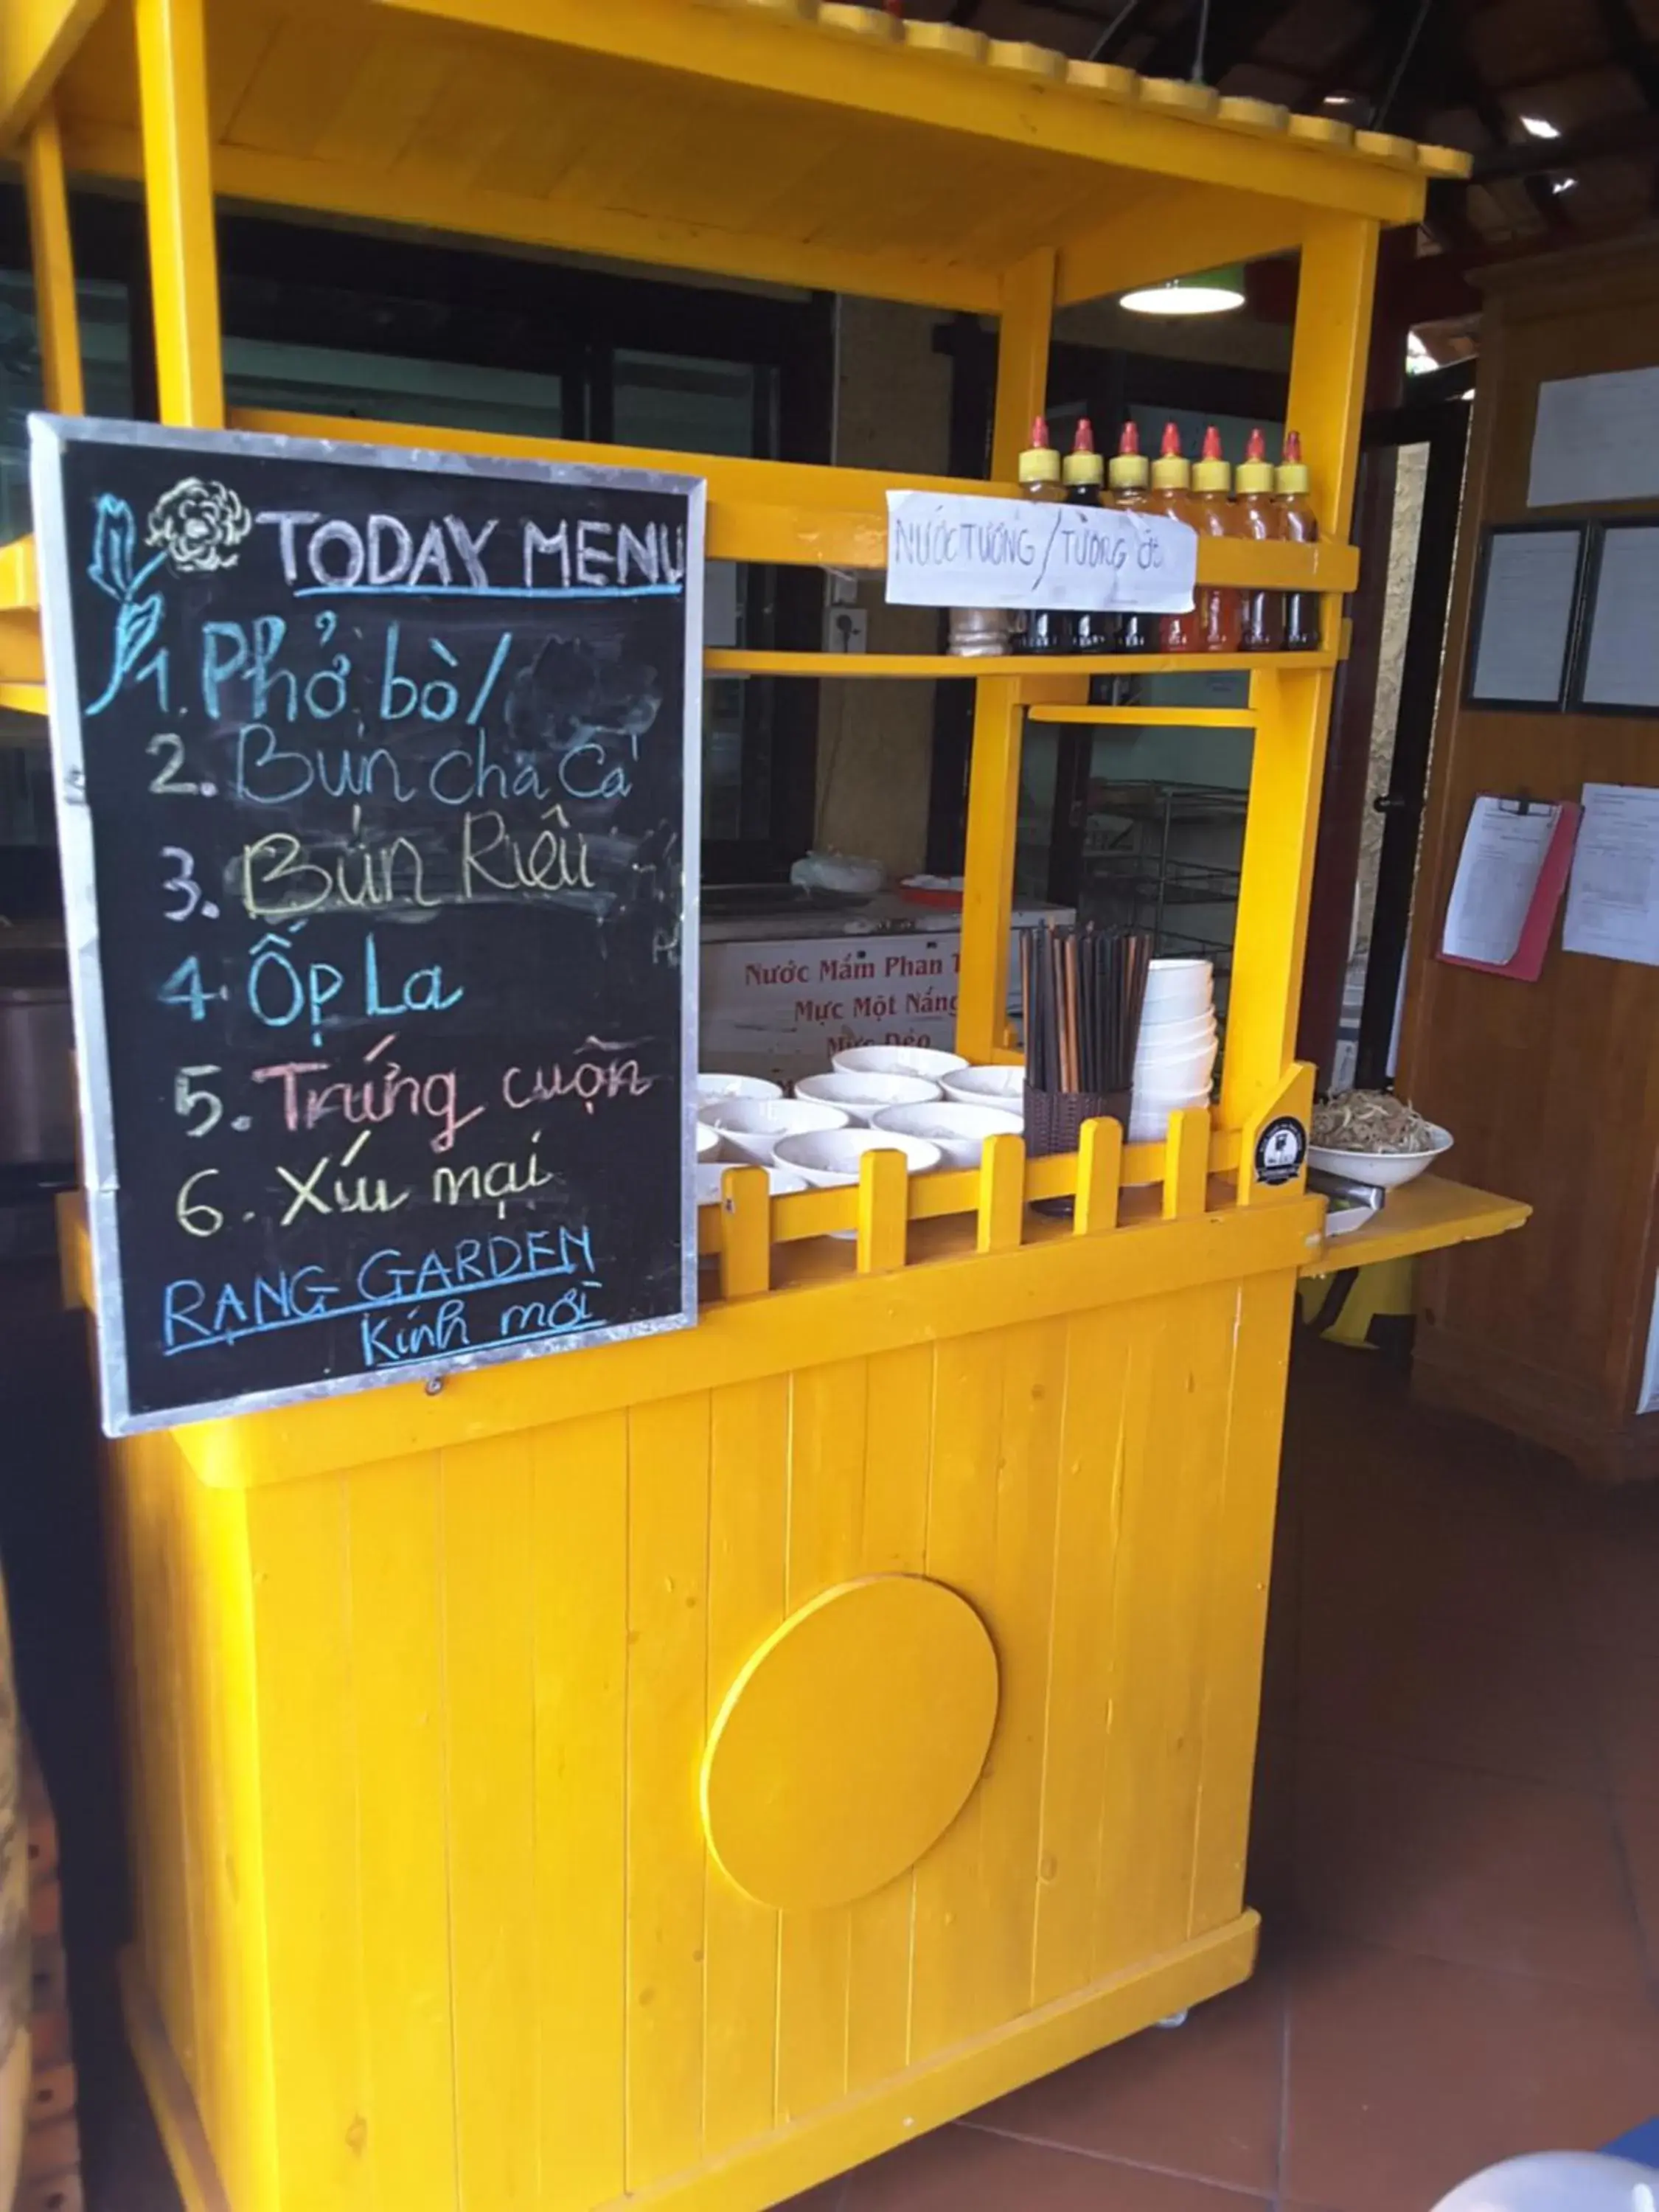 TODAY MENU
1. Phở bò/
2. Bún chả Cá
3. Bún Riêu
4. Ốp La
5. Trứng cuộn
6. Xíu mại
RẠNG GARDEN
Kính mời
NƯỚC TƯƠNG/TƯƠNG ớt
Nước Mắm Phan
Mực Một Nắng
Mực Dẻo